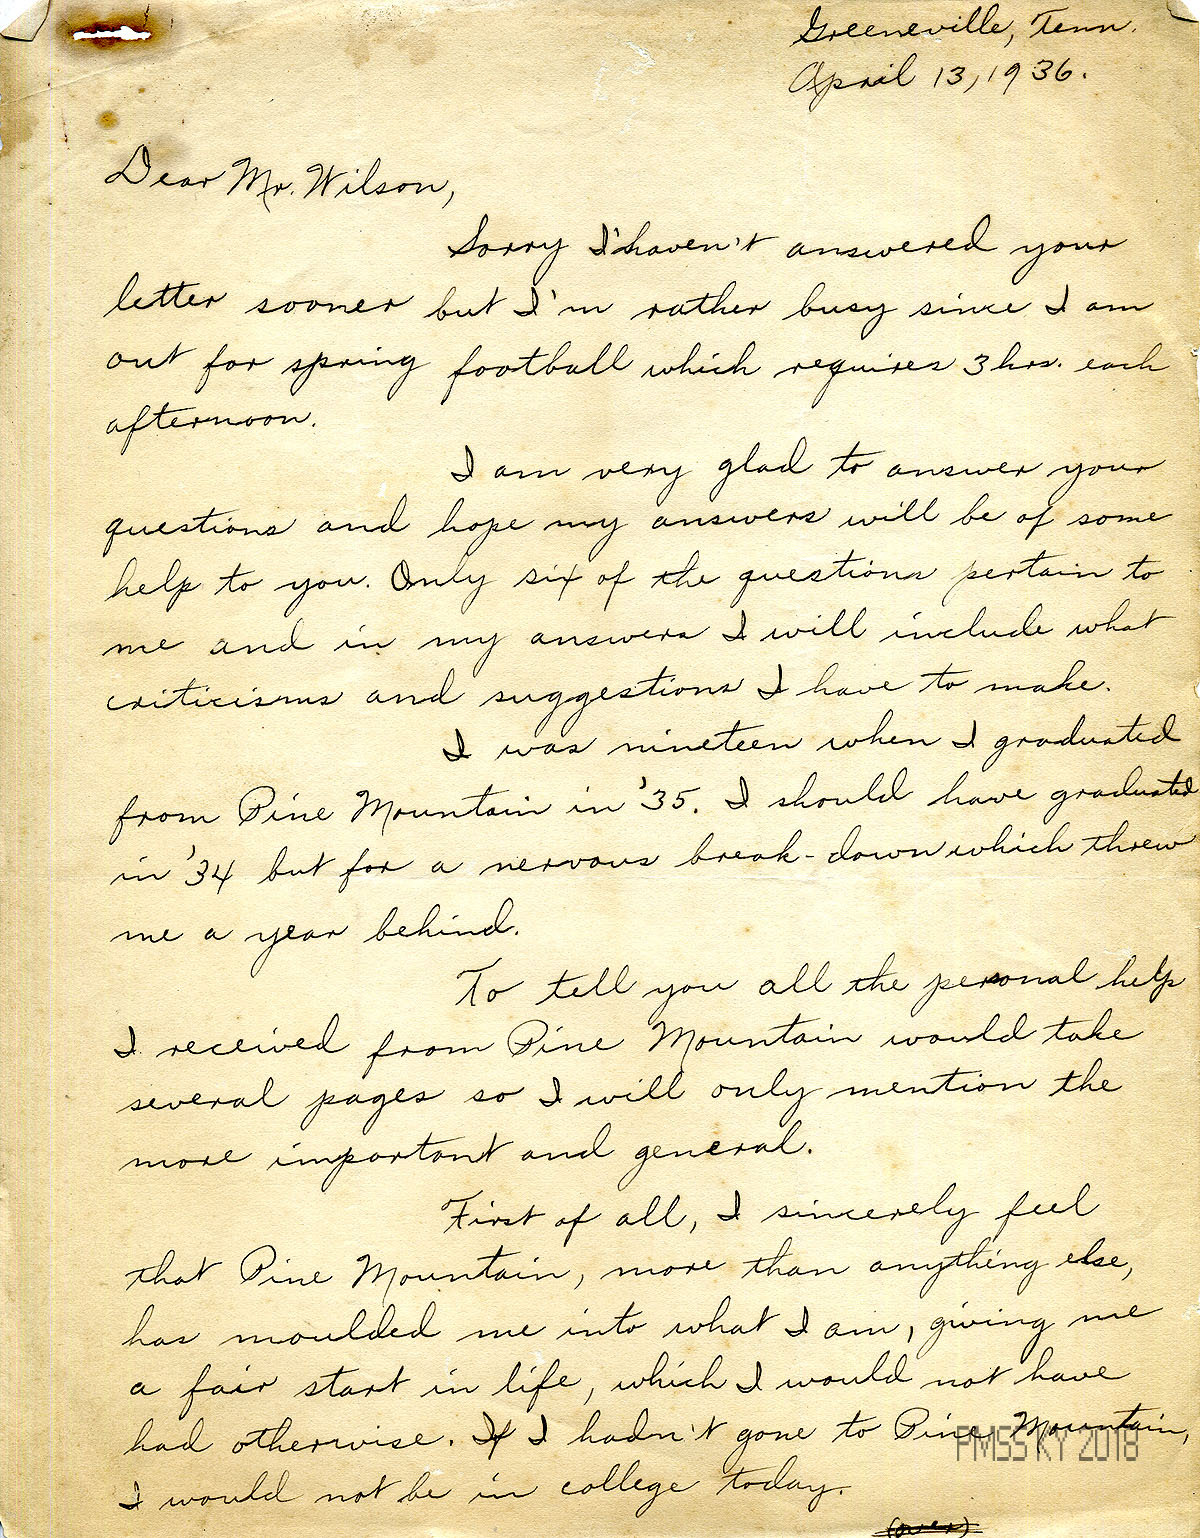 Greeneville, Tenn.
April 13, 1936.
Dear Mr. Wilson,
Sorry I haven't answered your
letter sooner but I'm rather busy since I am
out for spring football which requires 3 hrs. each
afternoon.
I am very glad to answer your
questions and hope my answers will be of some
help to you. Only six of the questions pertain to
me and in my answers I will include what
criticisms and suggestions I have to make.
I was nineteen when I graduated
from Pine Mountain in '35. I should have graduated
in '34 but for a nervous break-down which threw
me a year behind.
To tell you all the personal help
I received from Pine Mountain would take
several pages so I will only mention the
more important and general.
First of all, I sincerely feel
that Pine Mountain, more than anything else,
has moulded me into what I am, giving me
a fair start in life, which I would not have
had otherwise. If I hadn't gone to Pine Mountain,
PMSS KY 2018
I would not be in college today.
(over)